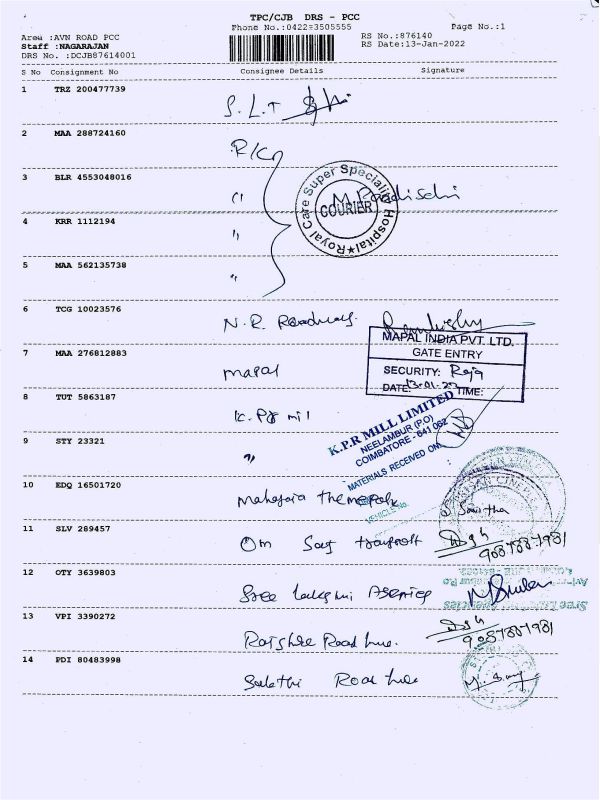 TPC/CJB DRS - PCC
Phone No.:0422-3505555
Page No.:1
Area :AVN ROAD PCC
RS No.:876140
Staff :NAGARAJAN
RS Date:13-Jan-2022
DRS No. :DCJB87614001
S No Consignment No Consignee Details Signature
1 TRZ 200477739 S.L.T
2 MAA 288724160 R/C
3 BLR 4553048016 "
Royal Care Super Speciality Hospital
COURIER
4 KRR 1112194 "
5 MAA 562135738 "
6 TCG 10023576 N.R. Roadways.
MAPAL INDIA PVT. LTD.
GATE ENTRY
7 MAA 276812883 mapal
SECURITY: Raja
DATE: 13-01-22 TIME:
8 TUT 5863187 K.P.R mil
K.P.R MILL LIMITED
NEELAMBUR (P.O)
COIMBATORE - 641 062
MATERIALS RECEIVED ON
VEHICLE No.
9 STY 23321 "
10 EDQ 16501720 Maharaja
11 SLV 289457 Om
9087887981
12 OTY 3639803 Sree
13 VPI 3390272 Rajshree Road line.
9087887981
14 PDI 80483998 Road line